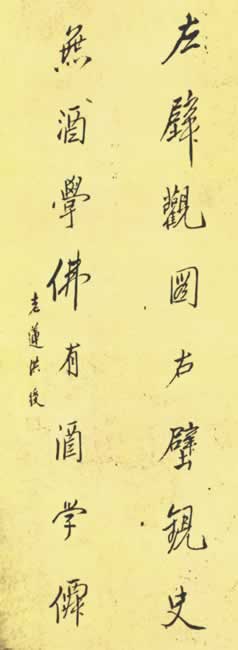 左壁觀圖右壁觀史
無酒學佛有酒学僊
老蓮洪綬